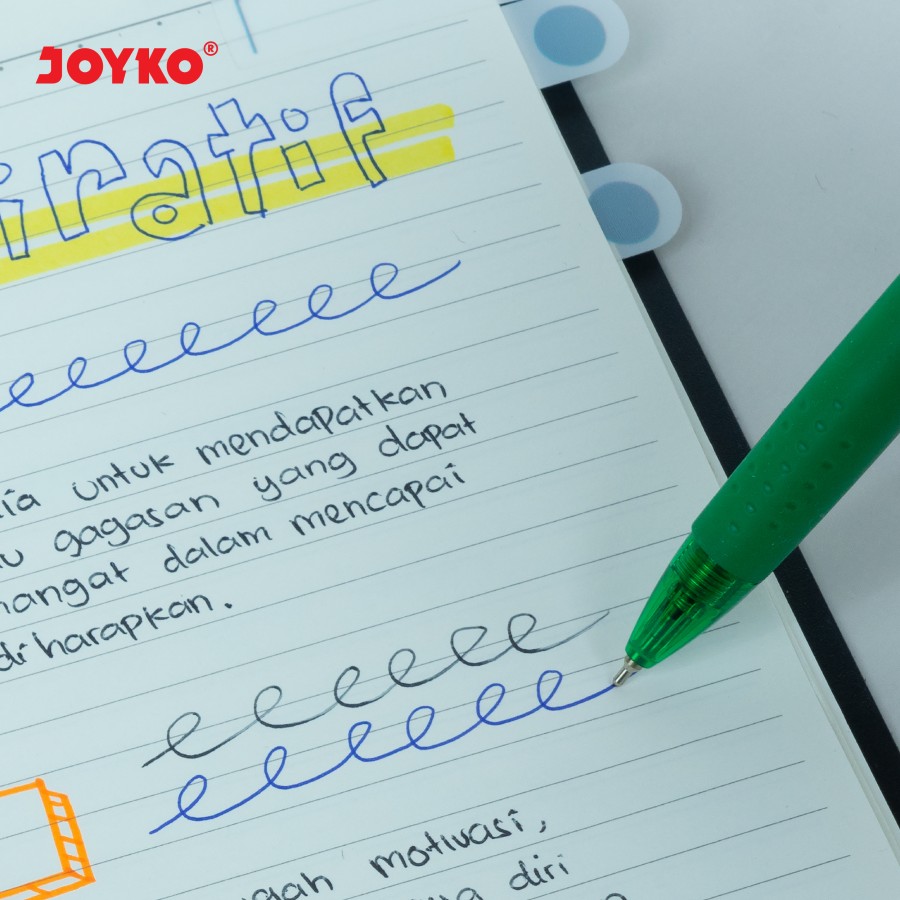 JOYKO®
iratif
untuk mendapatkan
gagasan yang dapat
dalam mencapai
diharapkan.
motivasi,
diri